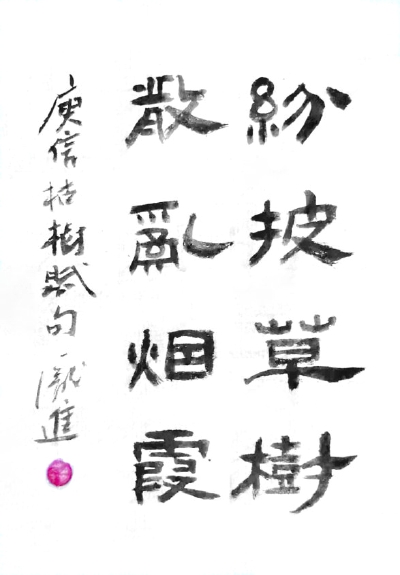 紛披草樹
散亂烟霞
庾信枯樹賦句 進